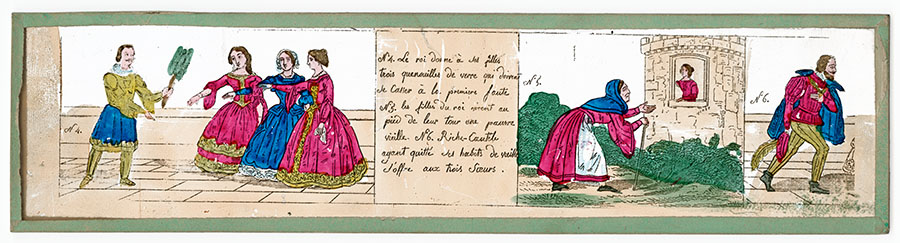 Nº 4.
Nº 4. Le roi donne à ses filles
trois quenouilles de verre qui doivent
se Casser à la première faute
Nº 5. les filles du roi voient au
pied de leur tour une pauvre
vieille Nº 6. Riche-Cautèle
ayant quitté ses habits de vieille
s'offre aux trois Sœurs.
Nº 5.
Nº 6.